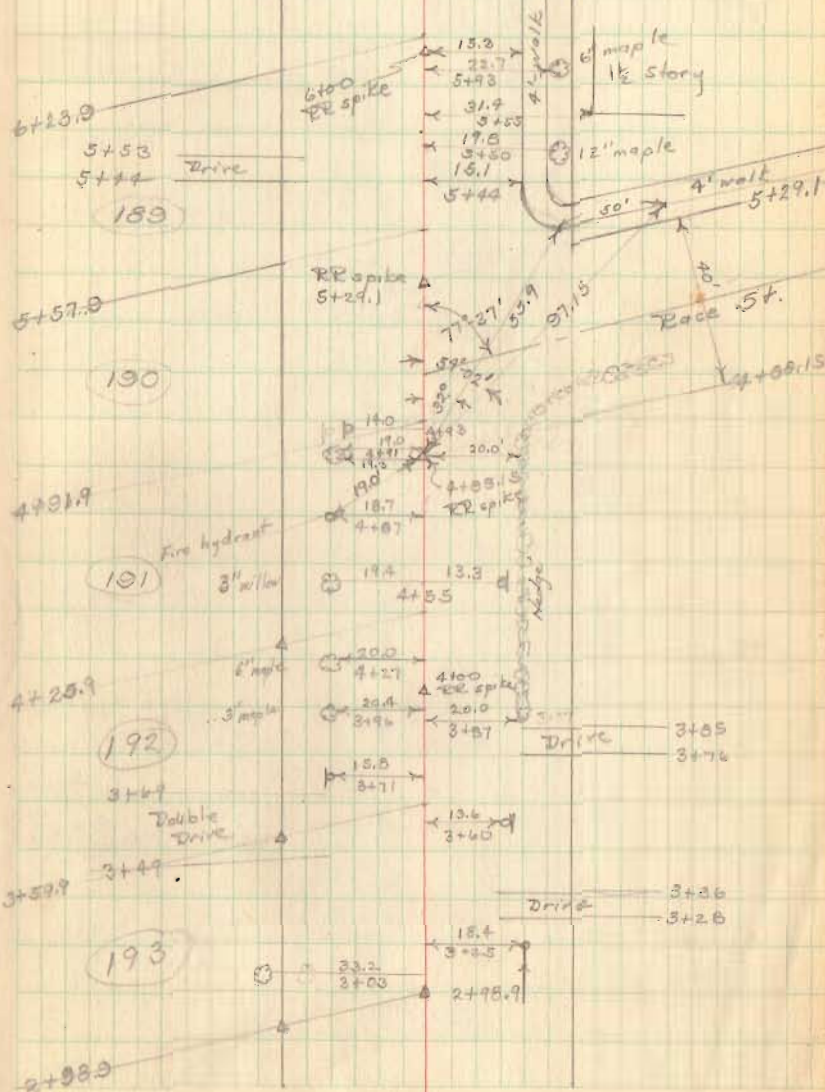 15.2
22.7
5+93
4' walk
6" maple
1½ Story
6+00
RR spike
31.4
5+55
6+23.9
19.8
5+50
12" maple
5+53
Drive
5+44
15.1
5+44
4' walk
50'
5+29.1
189
RR spike
5+29.1
40'
5+57.9
77°-27'
53.9
97.15
Race St.
190
4+88.15
14.0
4+93
19.0
4+91
19.3
20.0'
19.0'
4+88.15
RR spike
4+91.9
18.7
4+87
Fire hydrant
191
3" willow
19.4
13.3
4+55
Hedge
6" maple
20.0
4+27
4+00
RR spike
4+25.9
3" maple
20.4
3+96
20.0
3+87
192
Drive
3+85
3+76
15.8
3+71
3+69
Double
Drive
13.6
3+60
3+49
3+59.9
Drive
3+36
3+28
193
18.4
33.2
3+03
2+98.9
2+98.9